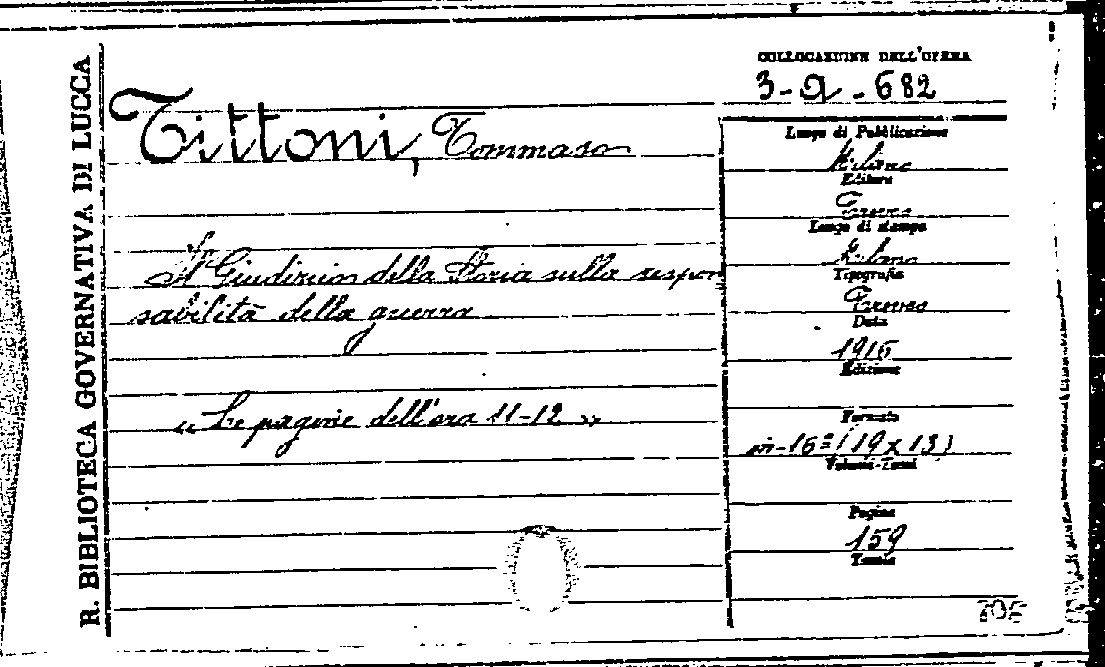 R. BIBLIOTECA GOVERNATIVA DI LUCCA
COLLOCAZIONE DELL'OPERA
3-a-682
Tittoni, Tommaso
Il Giudizio della Storia sulla respon
sabilità della guerra
« Le pagine dell'ora 11-12 »
Luogo di Pubblicazione
Milano
Editore
Treves
Luogo di stampa
Milano
Tipografia
Treves
Data
1916
Edizione
Formato
in-16º (19 x 13)
Volumi-Tomi
Pagine
159
Tavole